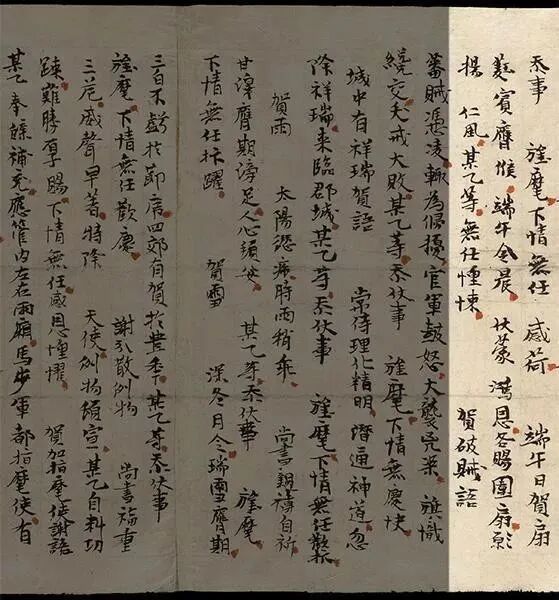 忝事 旌麾下情無任 感荷 端午日賀扇
蕤賓膺候端午令晨 伏蒙 鴻恩各賜團扇願
揚 仁風某乙等無任悚悚 賀破賊語
蕃賊憑凌輒為侵擾官軍鼓怒大襲兇渠 旌幟
繞交夭戎大敗某乙等忝伏事 旌麾下情無慶快
城中有祥瑞賀語 常侍理化精明潛通神道忽
除祥瑞來臨郡城某乙等忝伏事 旌麾下情無任歡抃
賀雨 太陽愆席時雨稍乖 尚書親禱自祈
甘澤膺期滂足人心頓安 某乙等忝伏事 旌麾
下情無任抃躍 賀雪 深冬月令瑞雪膺期
三白不虧於節席四郊有賀於豐年某乙等忝伏事
旌麾下情無任歡慶 謝 散例物 尚書福重
三危威聲早著特降 天使例物傾宣某乙自料功
踈難勝厚賜下情無任感恩惶懼 賀加指麾使謝語
某乙奉 補充應管內左右兩廂馬步軍都指麾使有